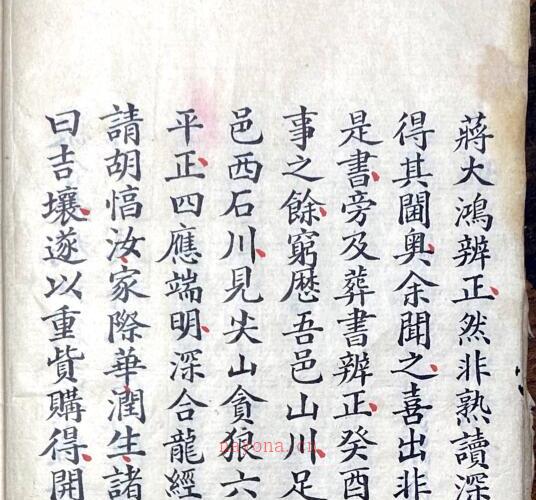 蔣大鴻辨正然非熟讀深
得其閫奧余聞之喜出非
是書旁及葬書辨正癸酉
事之餘窮歷吾邑山川足
邑西石川見尖山貪狼六
平正四應端明深合龍經
請胡愊汝家際華潤生諸
曰吉壤遂以重貲購得開
nayona.cn